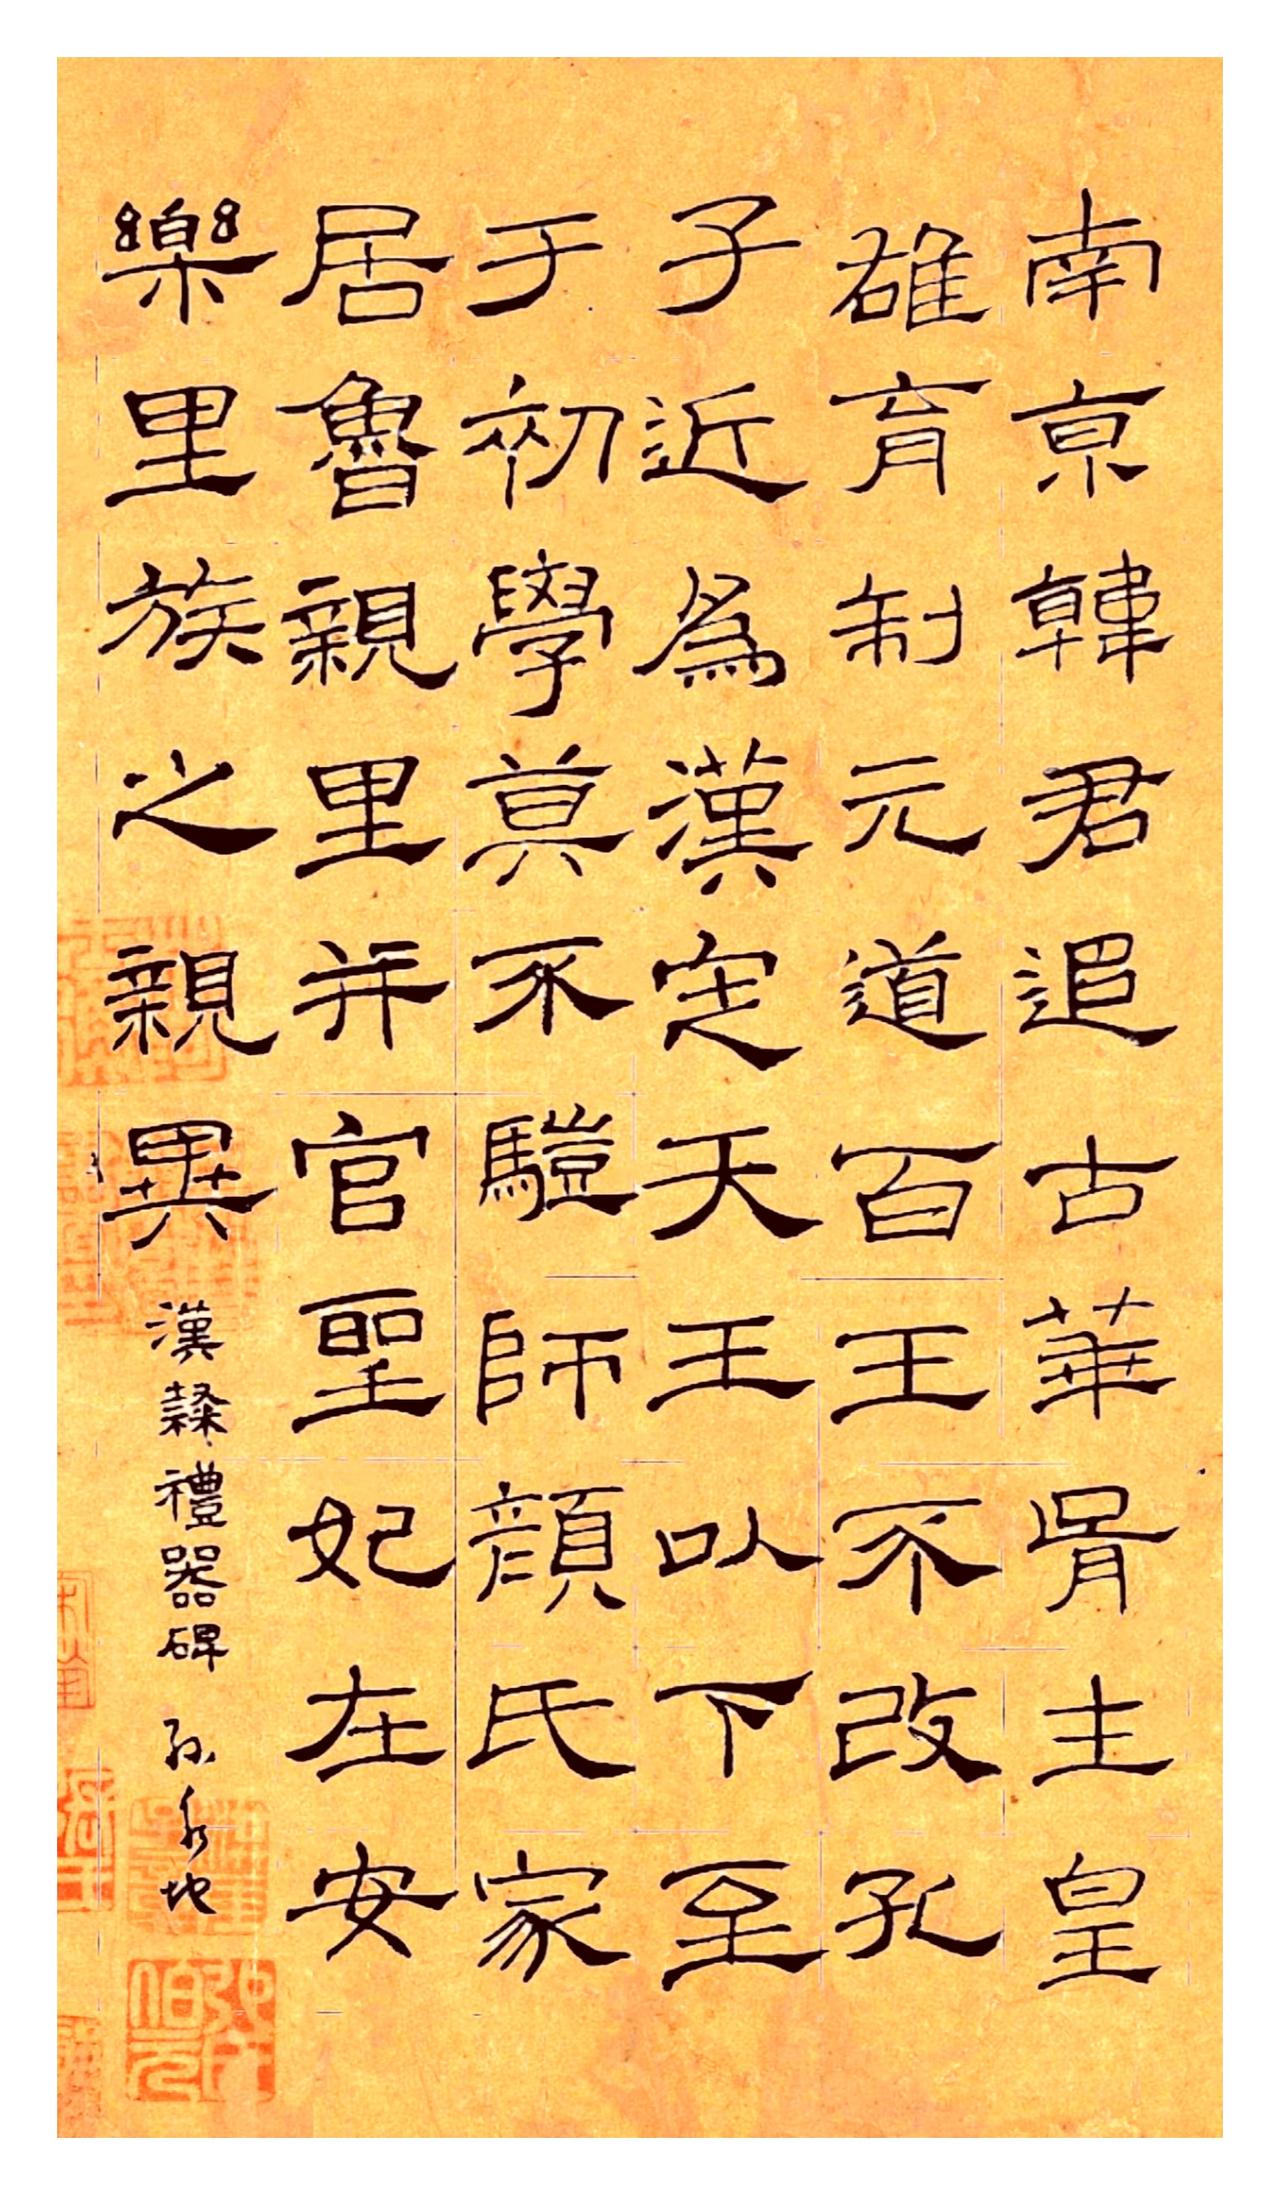 南京韓君追古華胥主皇
雄育制元道百王不改孔
子近為漢定天王以下至
于初學莫不驥師顏氏家
居魯親里并官聖妃在安
樂里族之親異
漢隸禮器碑 孙永地